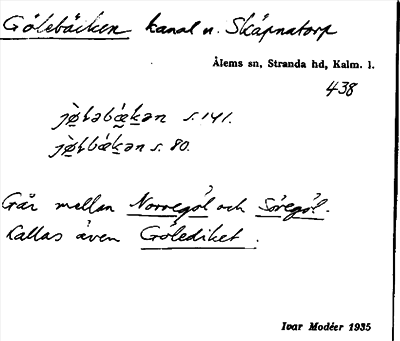 Gölebäcken kanal n. Skäpnatorp
Ålems sn, Stranda hd, Kalm. l.
438
s. 141.
s. 80.
Går mellan Norregöl och Söregöl.
Kallas även Gölediket.
Ivar Modéer 1935